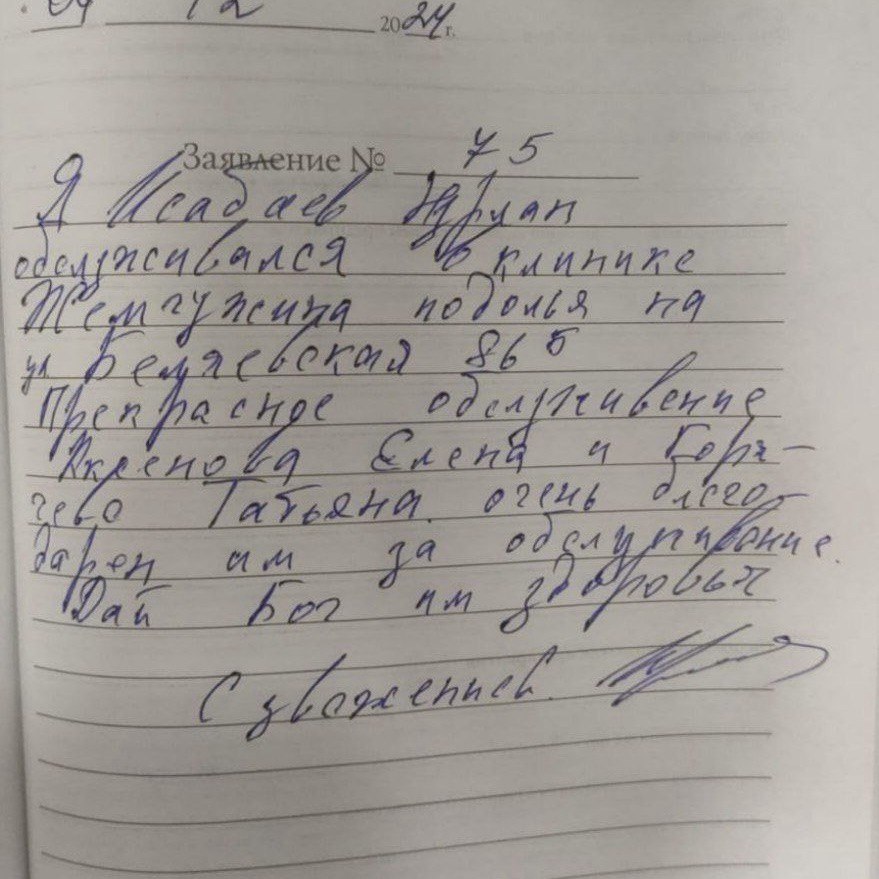 12 2024г.
Заявление № 75
Я Исабаев Нурлан
обслуживался в клинике
Жемчужина подолья на
ул Беляевская 86б
Прекрасное обслуживение
Аксенова Елена и
Татьяна. очень благо-
дарен им за обслуживание.
Дай Бог им здоровья
С уважением.